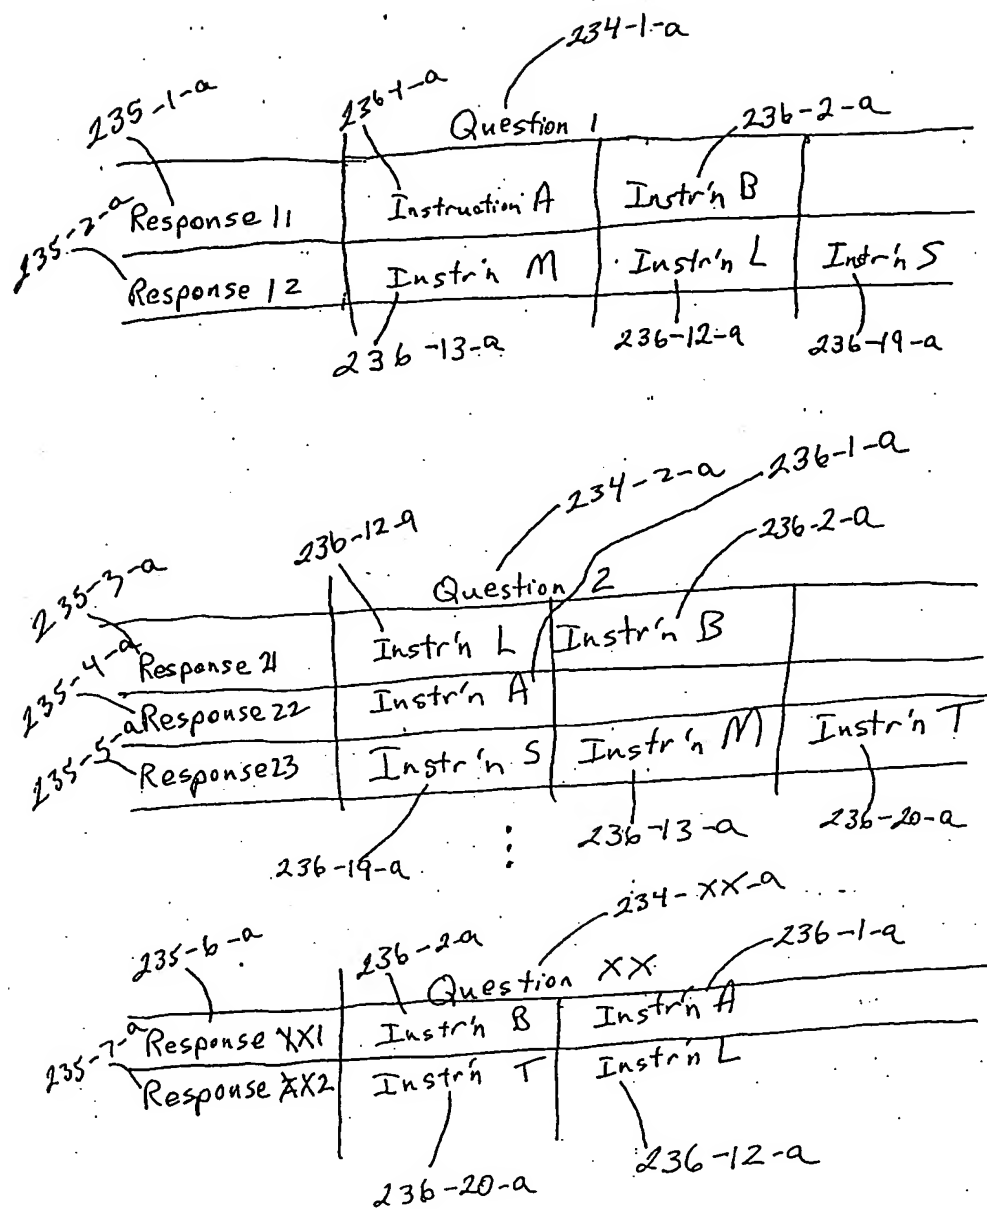 234-1-a
235-1-a 236-1-a Question 1 236-2-a
235-2-a Response 11 Instruction A Instr'n B
Response 12 Instr'n M Instr'n L Instr'n S
236-13-a 236-12-a 236-19-a
234-2-a 236-1-a
236-12-a 236-2-a
235-3-a Question 2
235-4-a Response 21 Instr'n L Instr'n B
235-5-a Response 22 Instr'n A
Response 23 Instr'n S Instr'n M Instr'n T
236-19-a 236-13-a 236-20-a
234-XX-a
235-6-a 236-2-a Question XX 236-1-a
235-7-a Response XX1 Instr'n B Instr'n A
Response XX2 Instr'n T Instr'n L
236-20-a 236-12-a